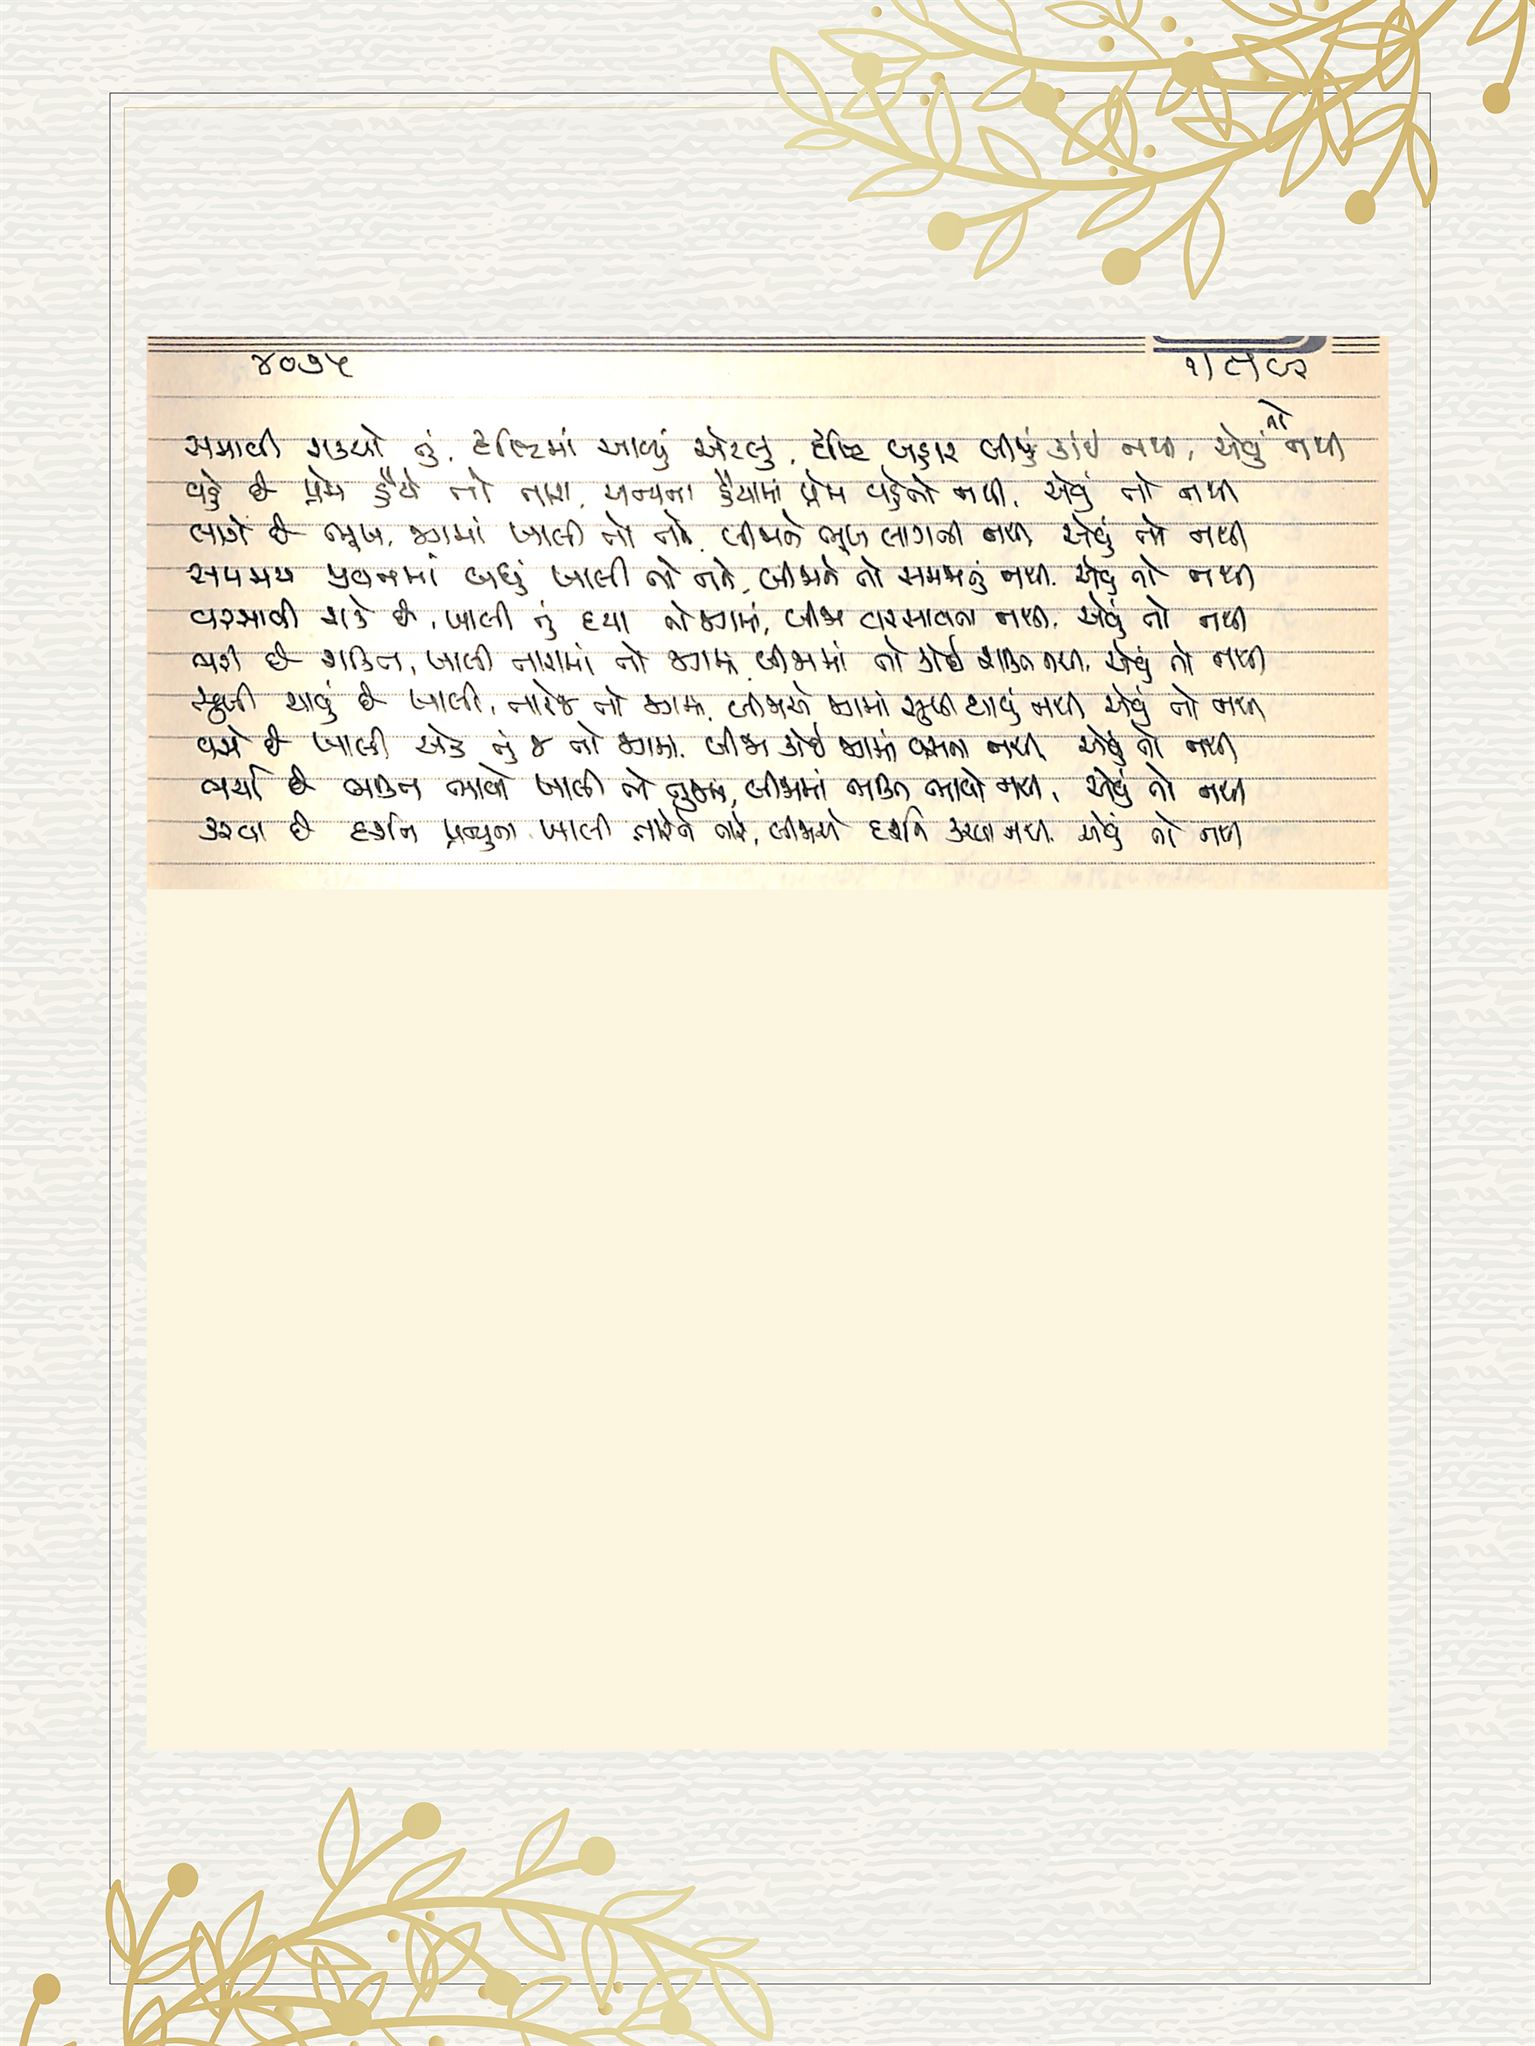 ૪૦૭૫ ૧/૮/૯૨
સમાવી શક્યો તું, દૃષ્ટિમાં આવ્યું એટલું, દૃષ્ટિ બહાર બીજું કાંઈ નથી, એવું તો નથી
વહે છે પ્રેમ હૈયે તો તારા, અન્યના હૈયામાં પ્રેમ વહેતો નથી, એવું તો નથી
લાગે છે ભૂખ, જગમાં ખાલી તો તને, બીજાને ભૂખ લાગતી નથી, એવું તો નથી
સમજાય જીવનમાં બધું ખાલી તો તને, બીજાને તો સમજાતું નથી, એવું તો નથી
વરસાવી શકે છે, ખાલી તું દયા તો જગમાં, બીજા વરસાવતા નથી, એવું તો નથી
ભરી છે શક્તિ, ખાલી તારામાં તો જગમાં, બીજામાં તો કોઈ શક્તિ નથી, એવું તો નથી
સુખી થાવું છે ખાલી, તારેજ તો જગમાં, બીજાએ જગમાં સુખી થાવું નથી, એવું તો નથી
વસે છે ખાલી એક તું જ તો જગમાં, બીજા કોઈ જગમાં વસતા નથી, એવું તો નથી
ભર્યા છે ભક્તિ ભાવો ખાલી તો તુજમાં, બીજામાં ભક્તિ ભાવો નથી, એવું તો નથી
કરવા છે દર્શન પ્રભુના ખાલી તારેને તારે, બીજાએ દર્શન કરવા નથી, એવું તો નથી